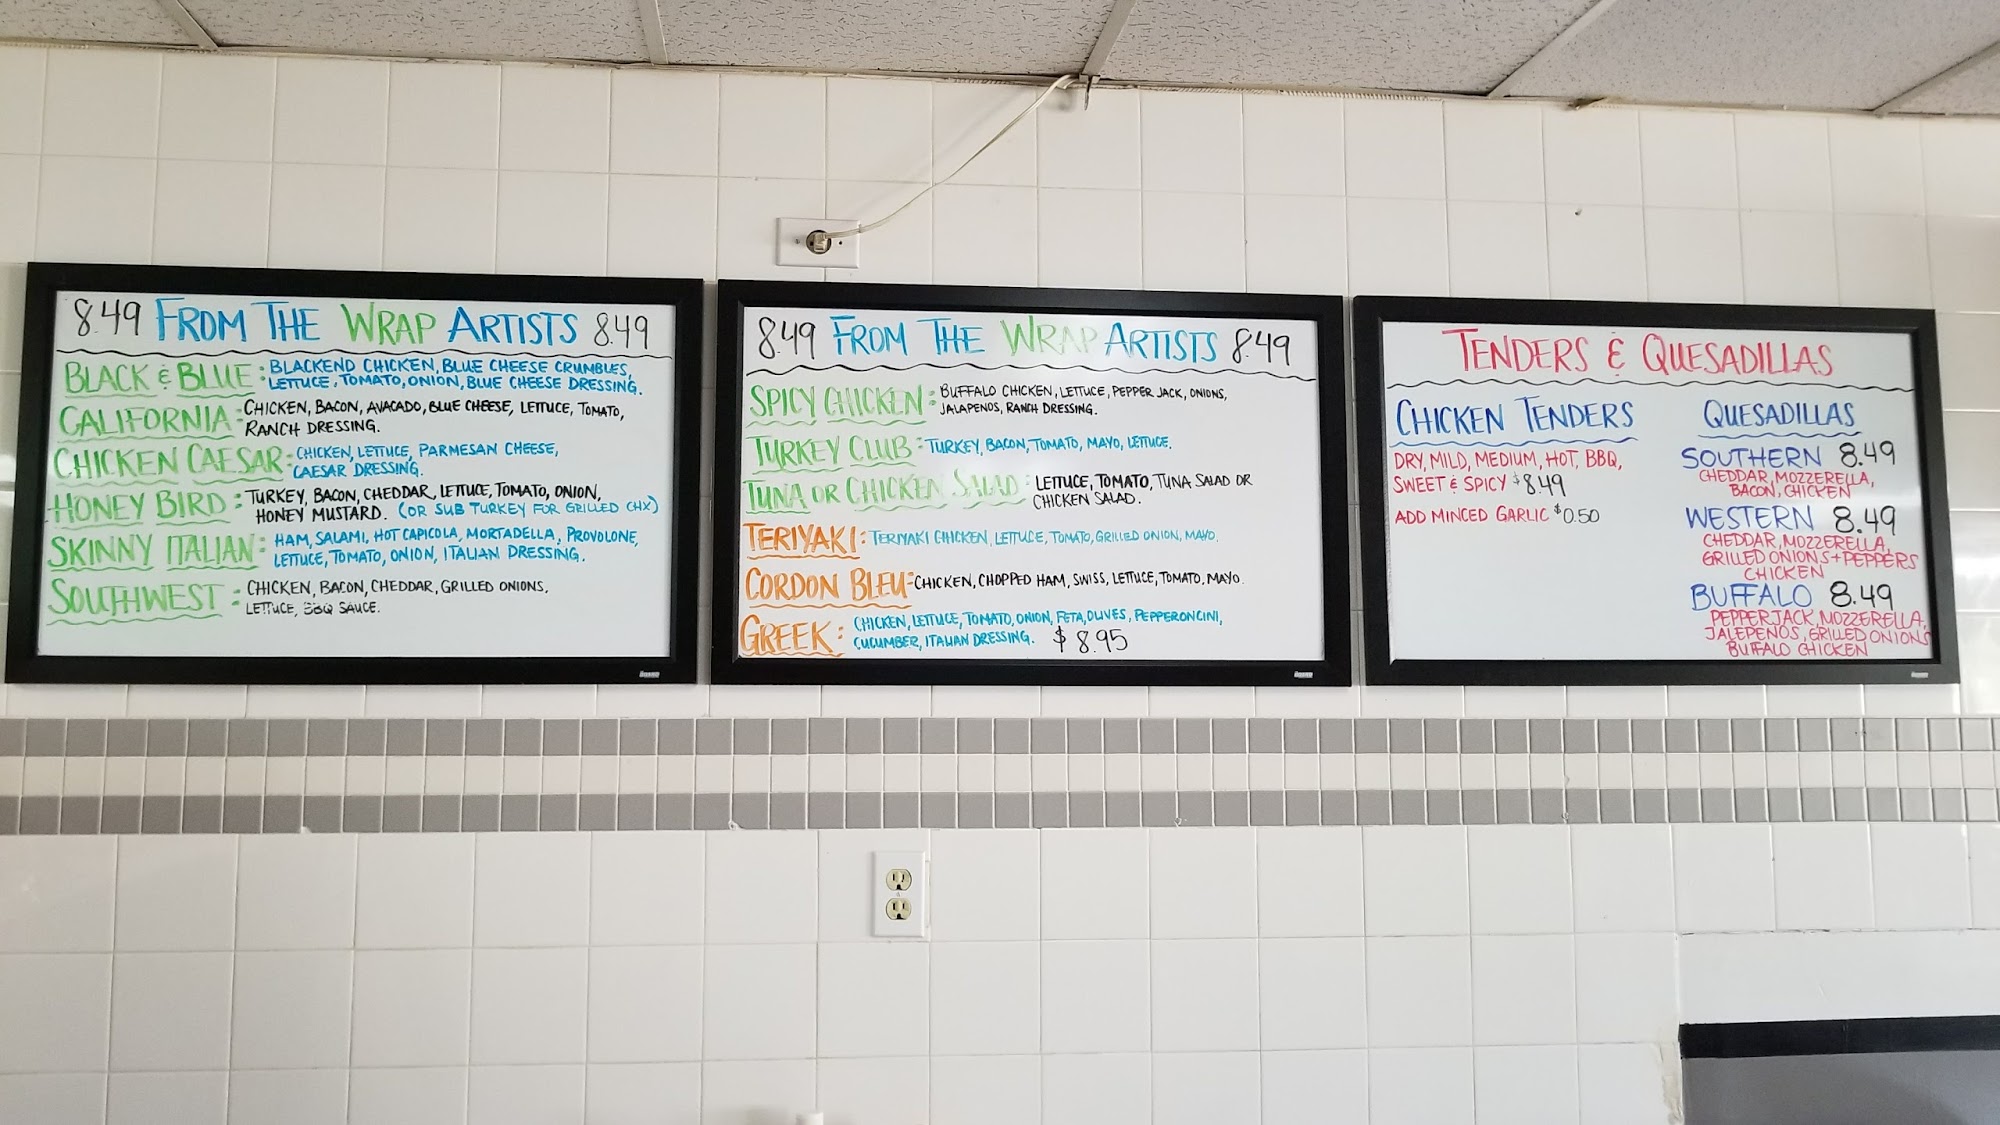 8.49 FROM THE WRAP ARTISTS 8.49
BLACK & BLUE: BLACKEND CHICKEN, BLUE CHEESE CRUMBLES,
LETTUCE, TOMATO, ONION, BLUE CHEESE DRESSING.
CALIFORNIA: CHICKEN, BACON, AVACADO, BLUE CHEESE, LETTUCE, TOMATO,
RANCH DRESSING.
CHICKEN CAESAR: CHICKEN, LETTUCE, PARMESAN CHEESE,
CAESAR DRESSING.
HONEY BIRD: TURKEY, BACON, CHEDDAR, LETTUCE, TOMATO, ONION,
HONEY MUSTARD. (OR SUB TURKEY FOR GRILLED CHX)
SKINNY ITALIAN: HAM, SALAMI, HOT CAPICOLA, MORTADELLA, PROVOLONE,
LETTUCE, TOMATO, ONION, ITALIAN DRESSING.
SOUTHWEST: CHICKEN, BACON, CHEDDAR, GRILLED ONIONS,
LETTUCE, BBQ SAUCE.
8.49 FROM THE WRAP ARTISTS 8.49
SPICY CHICKEN: BUFFALO CHICKEN, LETTUCE, PEPPER JACK, ONIONS,
JALAPENOS, RANCH DRESSING.
TURKEY CLUB: TURKEY, BACON, TOMATO, MAYO, LETTUCE.
TUNA OR CHICKEN SALAD: LETTUCE, TOMATO, TUNA SALAD OR
CHICKEN SALAD.
TERIYAKI: TERIYAKI CHICKEN, LETTUCE, TOMATO, GRILLED ONION, MAYO.
CORDON BLEU: CHICKEN, CHOPPED HAM, SWISS, LETTUCE, TOMATO, MAYO.
GREEK: CHICKEN, LETTUCE, TOMATO, ONION, FETA, OLIVES, PEPPERONCINI,
CUCUMBER, ITALIAN DRESSING. $8.95
TENDERS & QUESADILLAS
CHICKEN TENDERS
DRY, MILD, MEDIUM, HOT, BBQ,
SWEET & SPICY $8.49
ADD MINCED GARLIC $0.50
QUESADILLAS
SOUTHERN 8.49
CHEDDAR, MOZZERELLA,
BACON, CHICKEN
WESTERN 8.49
CHEDDAR, MOZZERELLA,
GRILLED ONIONS + PEPPERS
CHICKEN
BUFFALO 8.49
PEPPERJACK, MOZZERELLA,
JALEPENOS, GRILLED ONIONS
BUFFALO CHICKEN